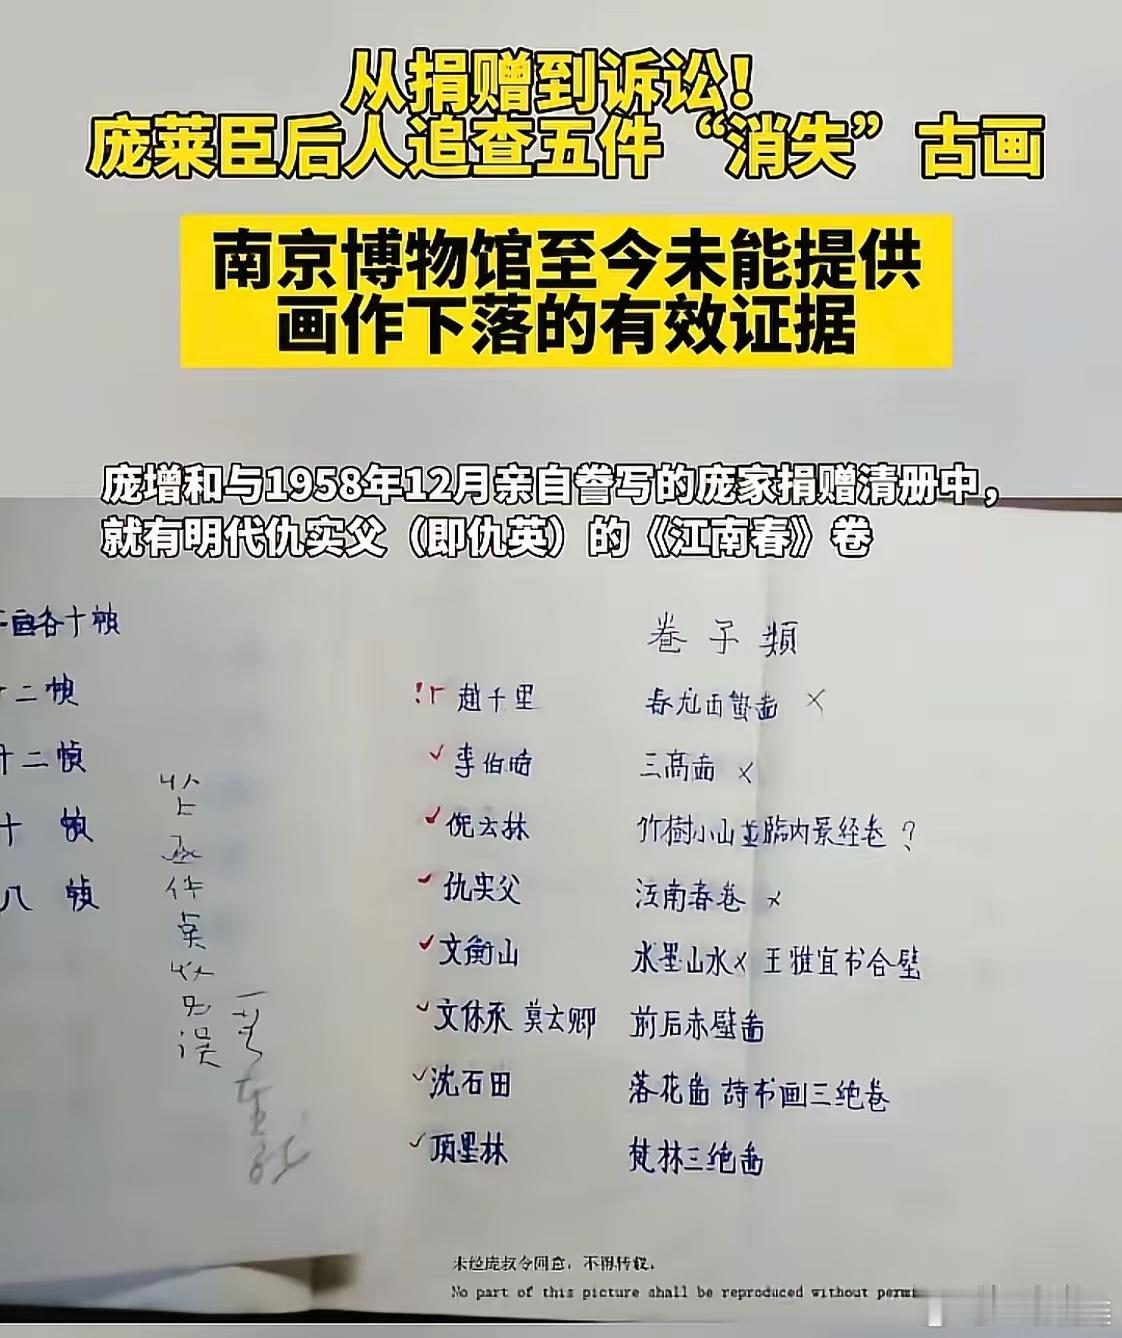 从捐赠到诉讼！
庞莱臣后人追查五件“消失”古画
南京博物馆至今未能提供
画作下落的有效证据
庞增和与1958年12月亲自誊写的庞家捐赠清册中，
就有明代仇实父（即仇英）的《江南春》卷
各十帧
十二帧
十二帧
十 帧
八 帧
件
误
卷子類
趙千里
李伯時 三高啚 x
倪云林 竹樹小山並臨内景经卷 ?
仇实父 江南春卷 x
文衡山 水墨山水x 王雅宜书合壁
文休承 莫云卿 前后赤壁啚
沈石田 落花啚 诗书画三绝卷
项墨林 梵林三绝啚
未经庞叔令同意，不得转载。
No part of this picture shall be reproduced without permi